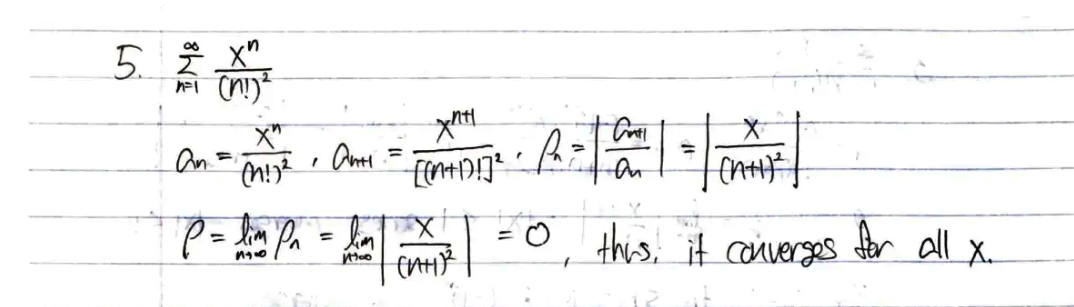 5. $\sum_{n=1}^{\infty} \frac{x^n}{(n!)^2}$
$a_n = \frac{x^n}{(n!)^2}, a_{n+1} = \frac{x^{n+1}}{[(n+1)!]^2}, \rho_n = \left|\frac{a_{n+1}}{a_n}\right| = \left|\frac{x}{(n+1)^2}\right|$
$\rho = \lim_{n \to \infty} \rho_n = \lim_{n \to \infty} \left|\frac{x}{(n+1)^2}\right| = 0$, thus, it converges for all x.